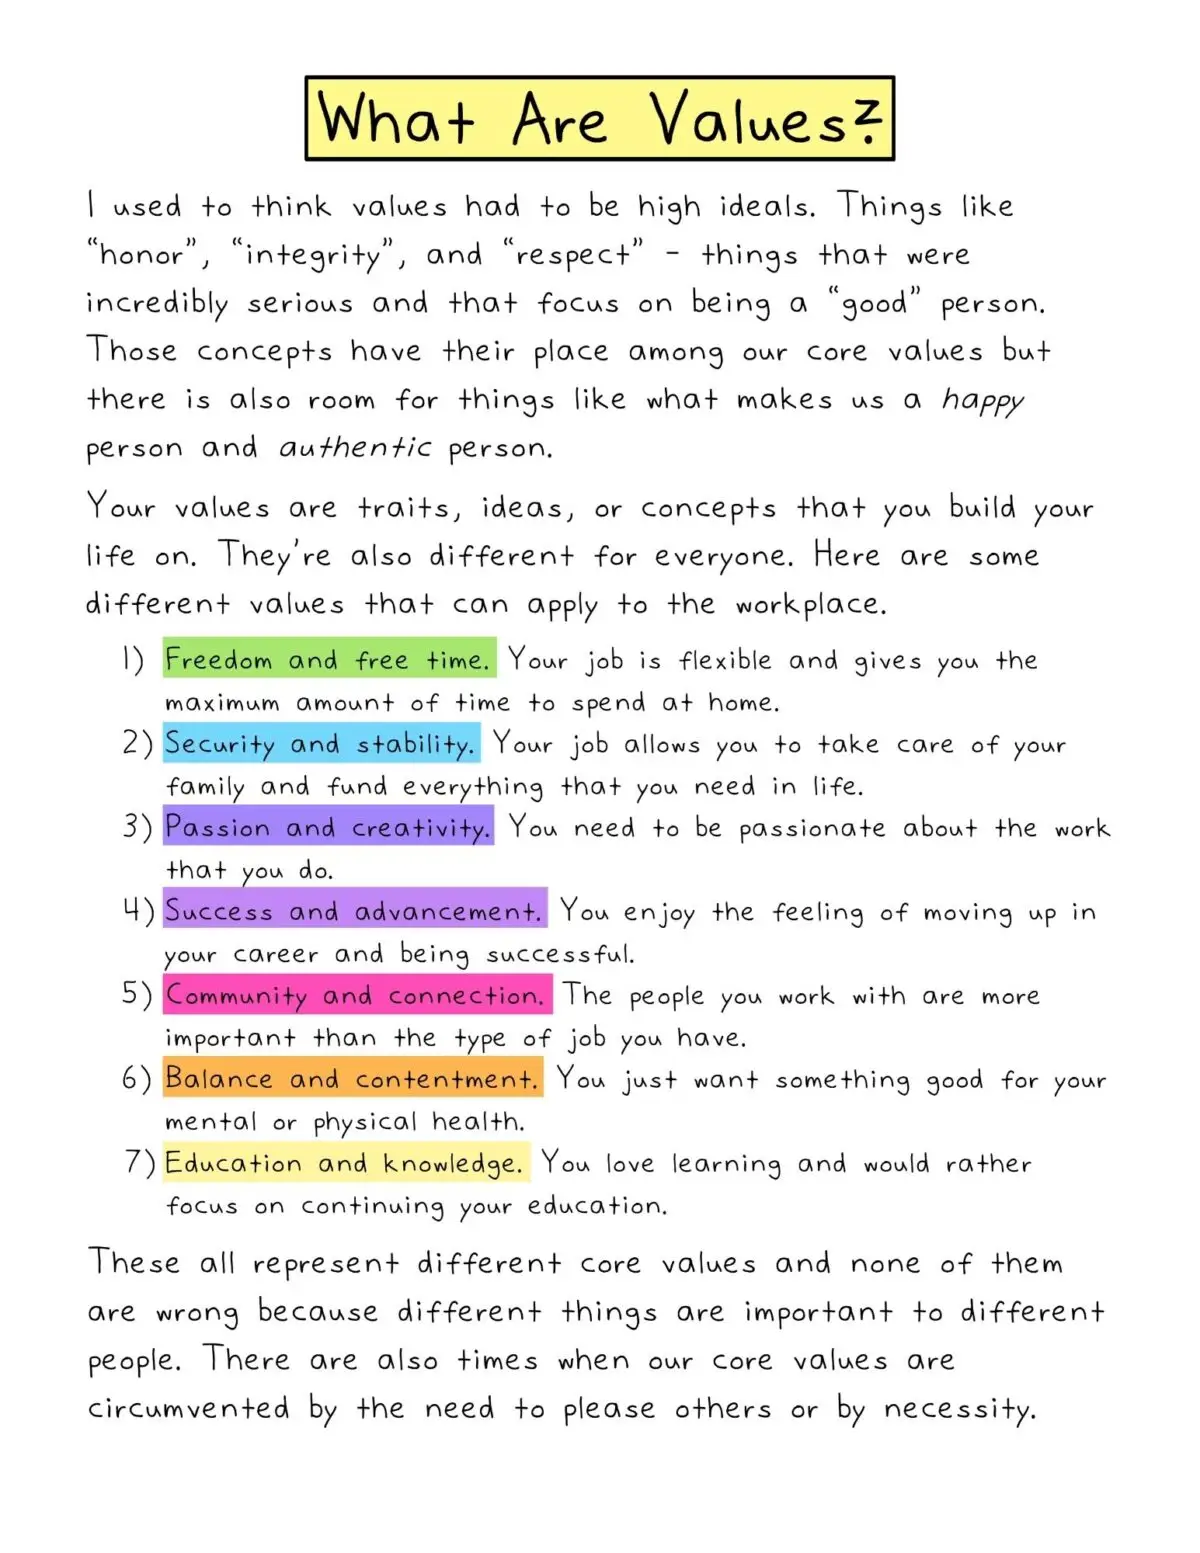 What Are Values?
I used to think values had to be high ideals. Things like
“honor”, “integrity”, and “respect” - things that were
incredibly serious and that focus on being a “good” person.
Those concepts have their place among our core values but
there is also room for things like what makes us a happy
person and authentic person.
Your values are traits, ideas, or concepts that you build your
life on. They're also different for everyone. Here are some
different values that can apply to the workplace.
1) Freedom and free time. Your job is flexible and gives you the
maximum amount of time to spend at home.
2) Security and stability. Your job allows you to take care of your
family and fund everything that you need in life.
3) Passion and creativity. You need to be passionate about the work
that you do.
4) Success and advancement. You enjoy the feeling of moving up in
your career and being successful.
5) Community and connection. The people you work with are more
important than the type of job you have.
6) Balance and contentment. You just want something good for your
mental or physical health.
7) Education and knowledge. You love learning and would rather
focus on continuing your education.
These all represent different core values and none of them
are wrong because different things are important to different
people. There are also times when our core values are
circumvented by the need to please others or by necessity.